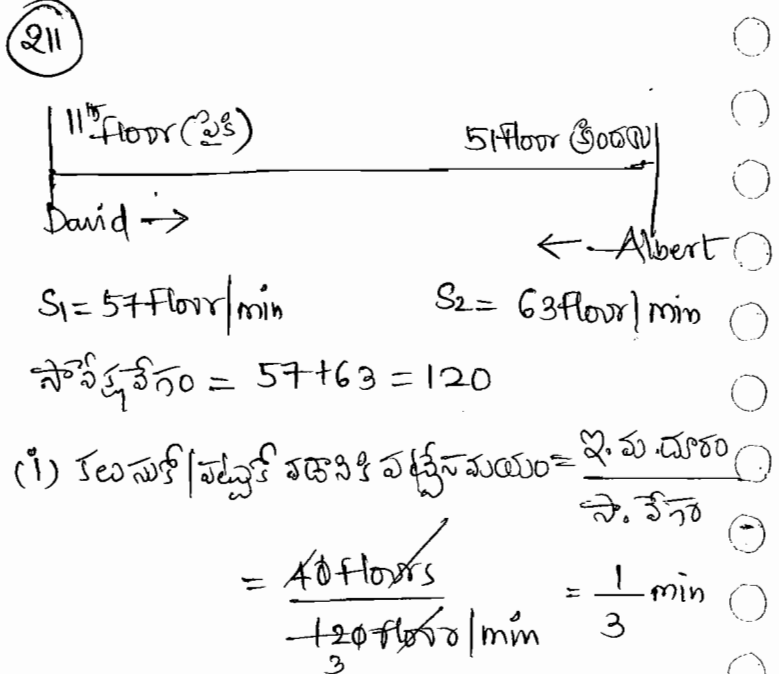 211
11th floor (పైకి) 51 floor క్రిందకు
David → ← Albert
S1 = 57 Floor/min S2 = 63 floor/min
సాపేక్ష వేగం = 57+63 = 120
(i) కలుసుకో/పట్టుకోవడానికి పట్టే సమయం = ఇ.మ.దూరం
సా. వేగం
= 40 floors = 1 min
120 floor/min 3
3